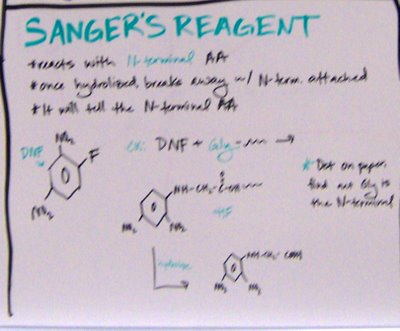 SANGER'S REAGENT
*reacts with N-terminal AA
*once hydrolized, breaks away w/ N-term. attached
*It will tell the N-terminal AA
DNF
NO₂
F
NO₂
ex: DNF + Gly-
NH-CH₂-C
NO₂
NO₂
+HF
* Dot on paper,
find out Gly is
the N-terminal
hydrolyze
NH-CH₂-COOH
NO₂
NO₂